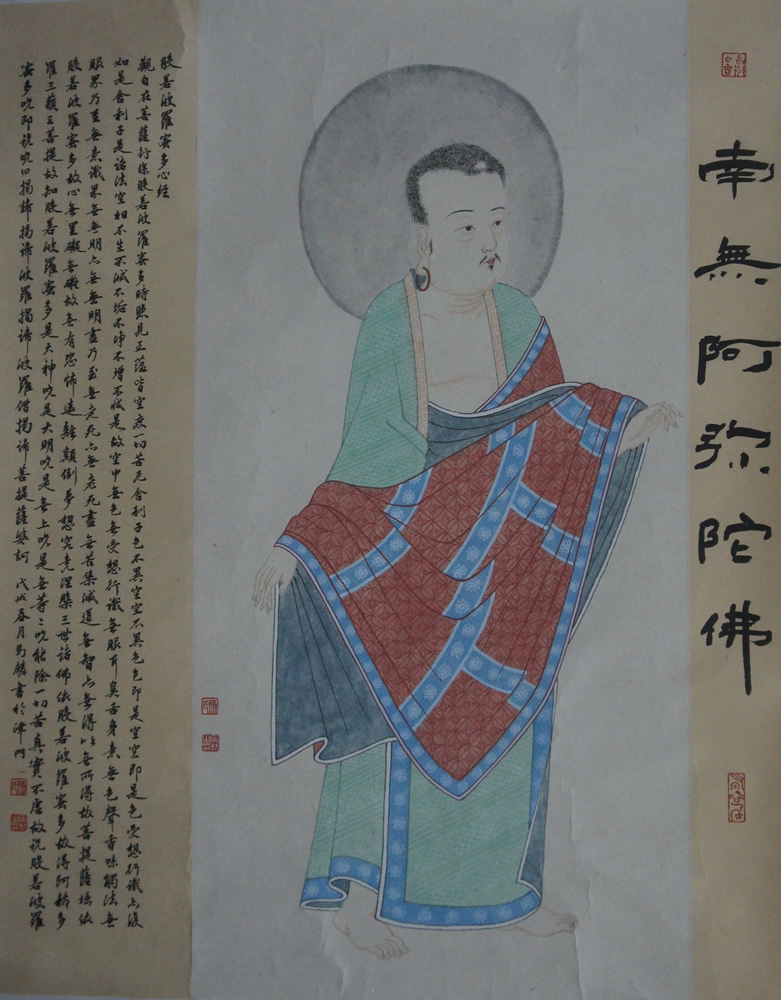 南無阿弥陀佛
般若波羅蜜多心經
觀自在菩薩行深般若波羅蜜多時照見五蘊皆空度一切苦厄舍利子色不異空空不異色色即是空空即是色受想行識亦復
如是舍利子是諸法空相不生不滅不垢不净不增不减是故空中無色無受想行識無眼耳鼻舌身意無色聲香味觸法無
眼界乃至無意識界無無明亦無無明盡乃至無老死亦無老死盡無苦集滅道無智亦無得以無所得故菩提薩埵依
般若波羅蜜多故心無罣礙無礙故無有恐怖遠離顛倒夢想究竟涅槃三世諸佛依般若波羅蜜多故得阿耨多
羅三藐三菩提故知般若波羅蜜多是大神咒是大明咒是無上咒是無等々咒能除一切苦真實不虛故說般若波羅
蜜多咒即說咒曰揭諦揭諦波羅揭諦波羅僧揭諦菩提薩婆訶 戊戌春月馬麟書於津門